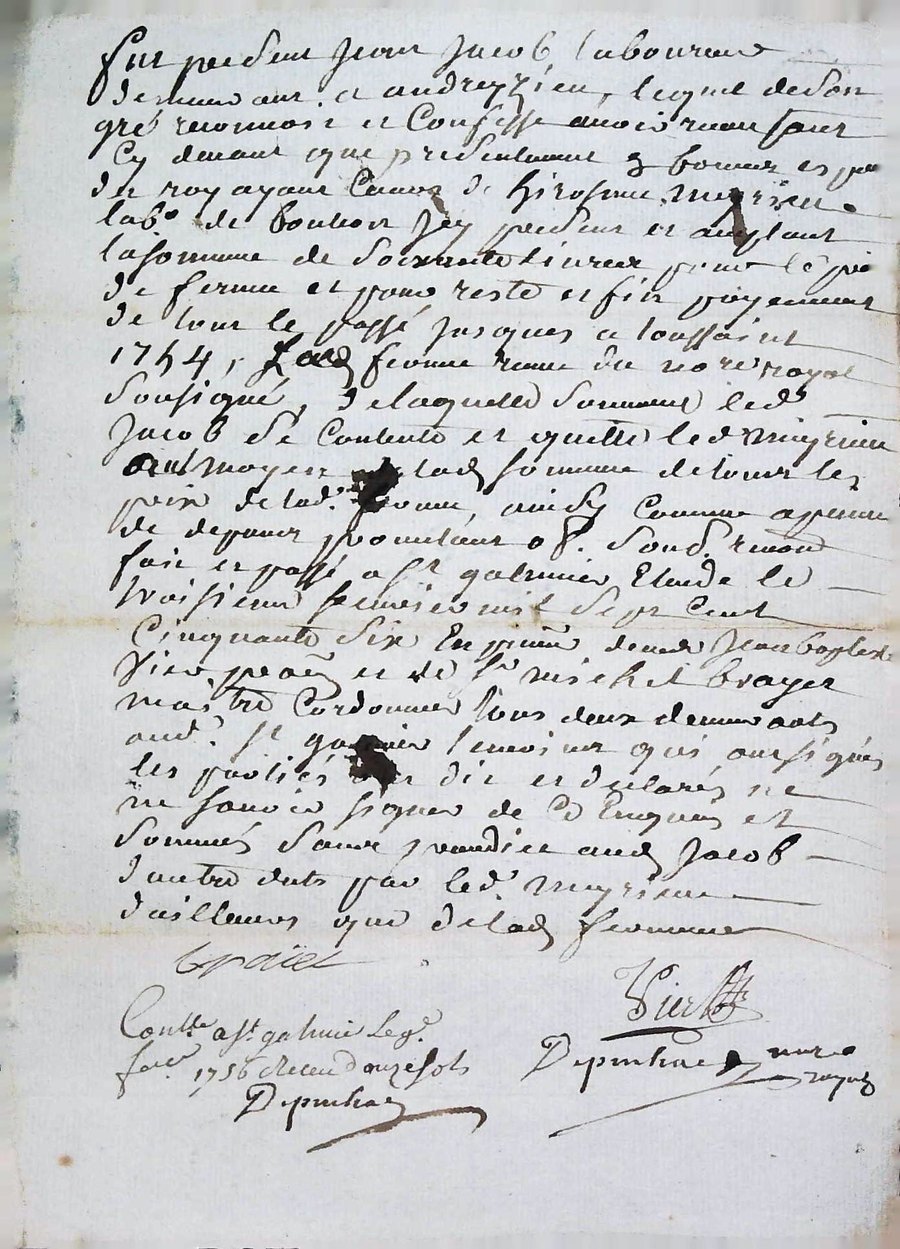 fut present Jean Jacob laboureur
demeurant a andrezieu, lequel de son
gré reconnoit et Confesse avoir receu tant
cy devant que presentement
de Hierosme meyrieu
labr de bouhon icy present et aceptant
la somme de Soixante Livres pour le prix
de ferme et pour reste et fin payement
de tout le passé jusques a toussaint
1754, ferme receue du nore royal
Sousigné, de laquelle Somme led.
Jacob se Contente et quitte led. meyrieu
moyen lad. somme de tout le
prix de lad. ferme, ainsy Comme a peine
de depens
fait et passé a St galmier Etude le
troisieme fevrier mil Sept Cent
Cinquante Six En presence de Jean baptiste
Vier et de Sr michel brayer
maistre Cordonnier tous deux demeurants
aud. St galmier temoins qui ont signés
les parties ont dit et declarés ne
ne savoir signer de Ce Enquis et
Sommés Sans prejudice aud. Jacob
d'autre dûts par led. meyrieu
d'ailleurs que de lad. ferme
braïer
Vier
Contllé a St galmié Le 9e
fer 1756 Receu douze sols
Depinhac nore
royal
Depinhac